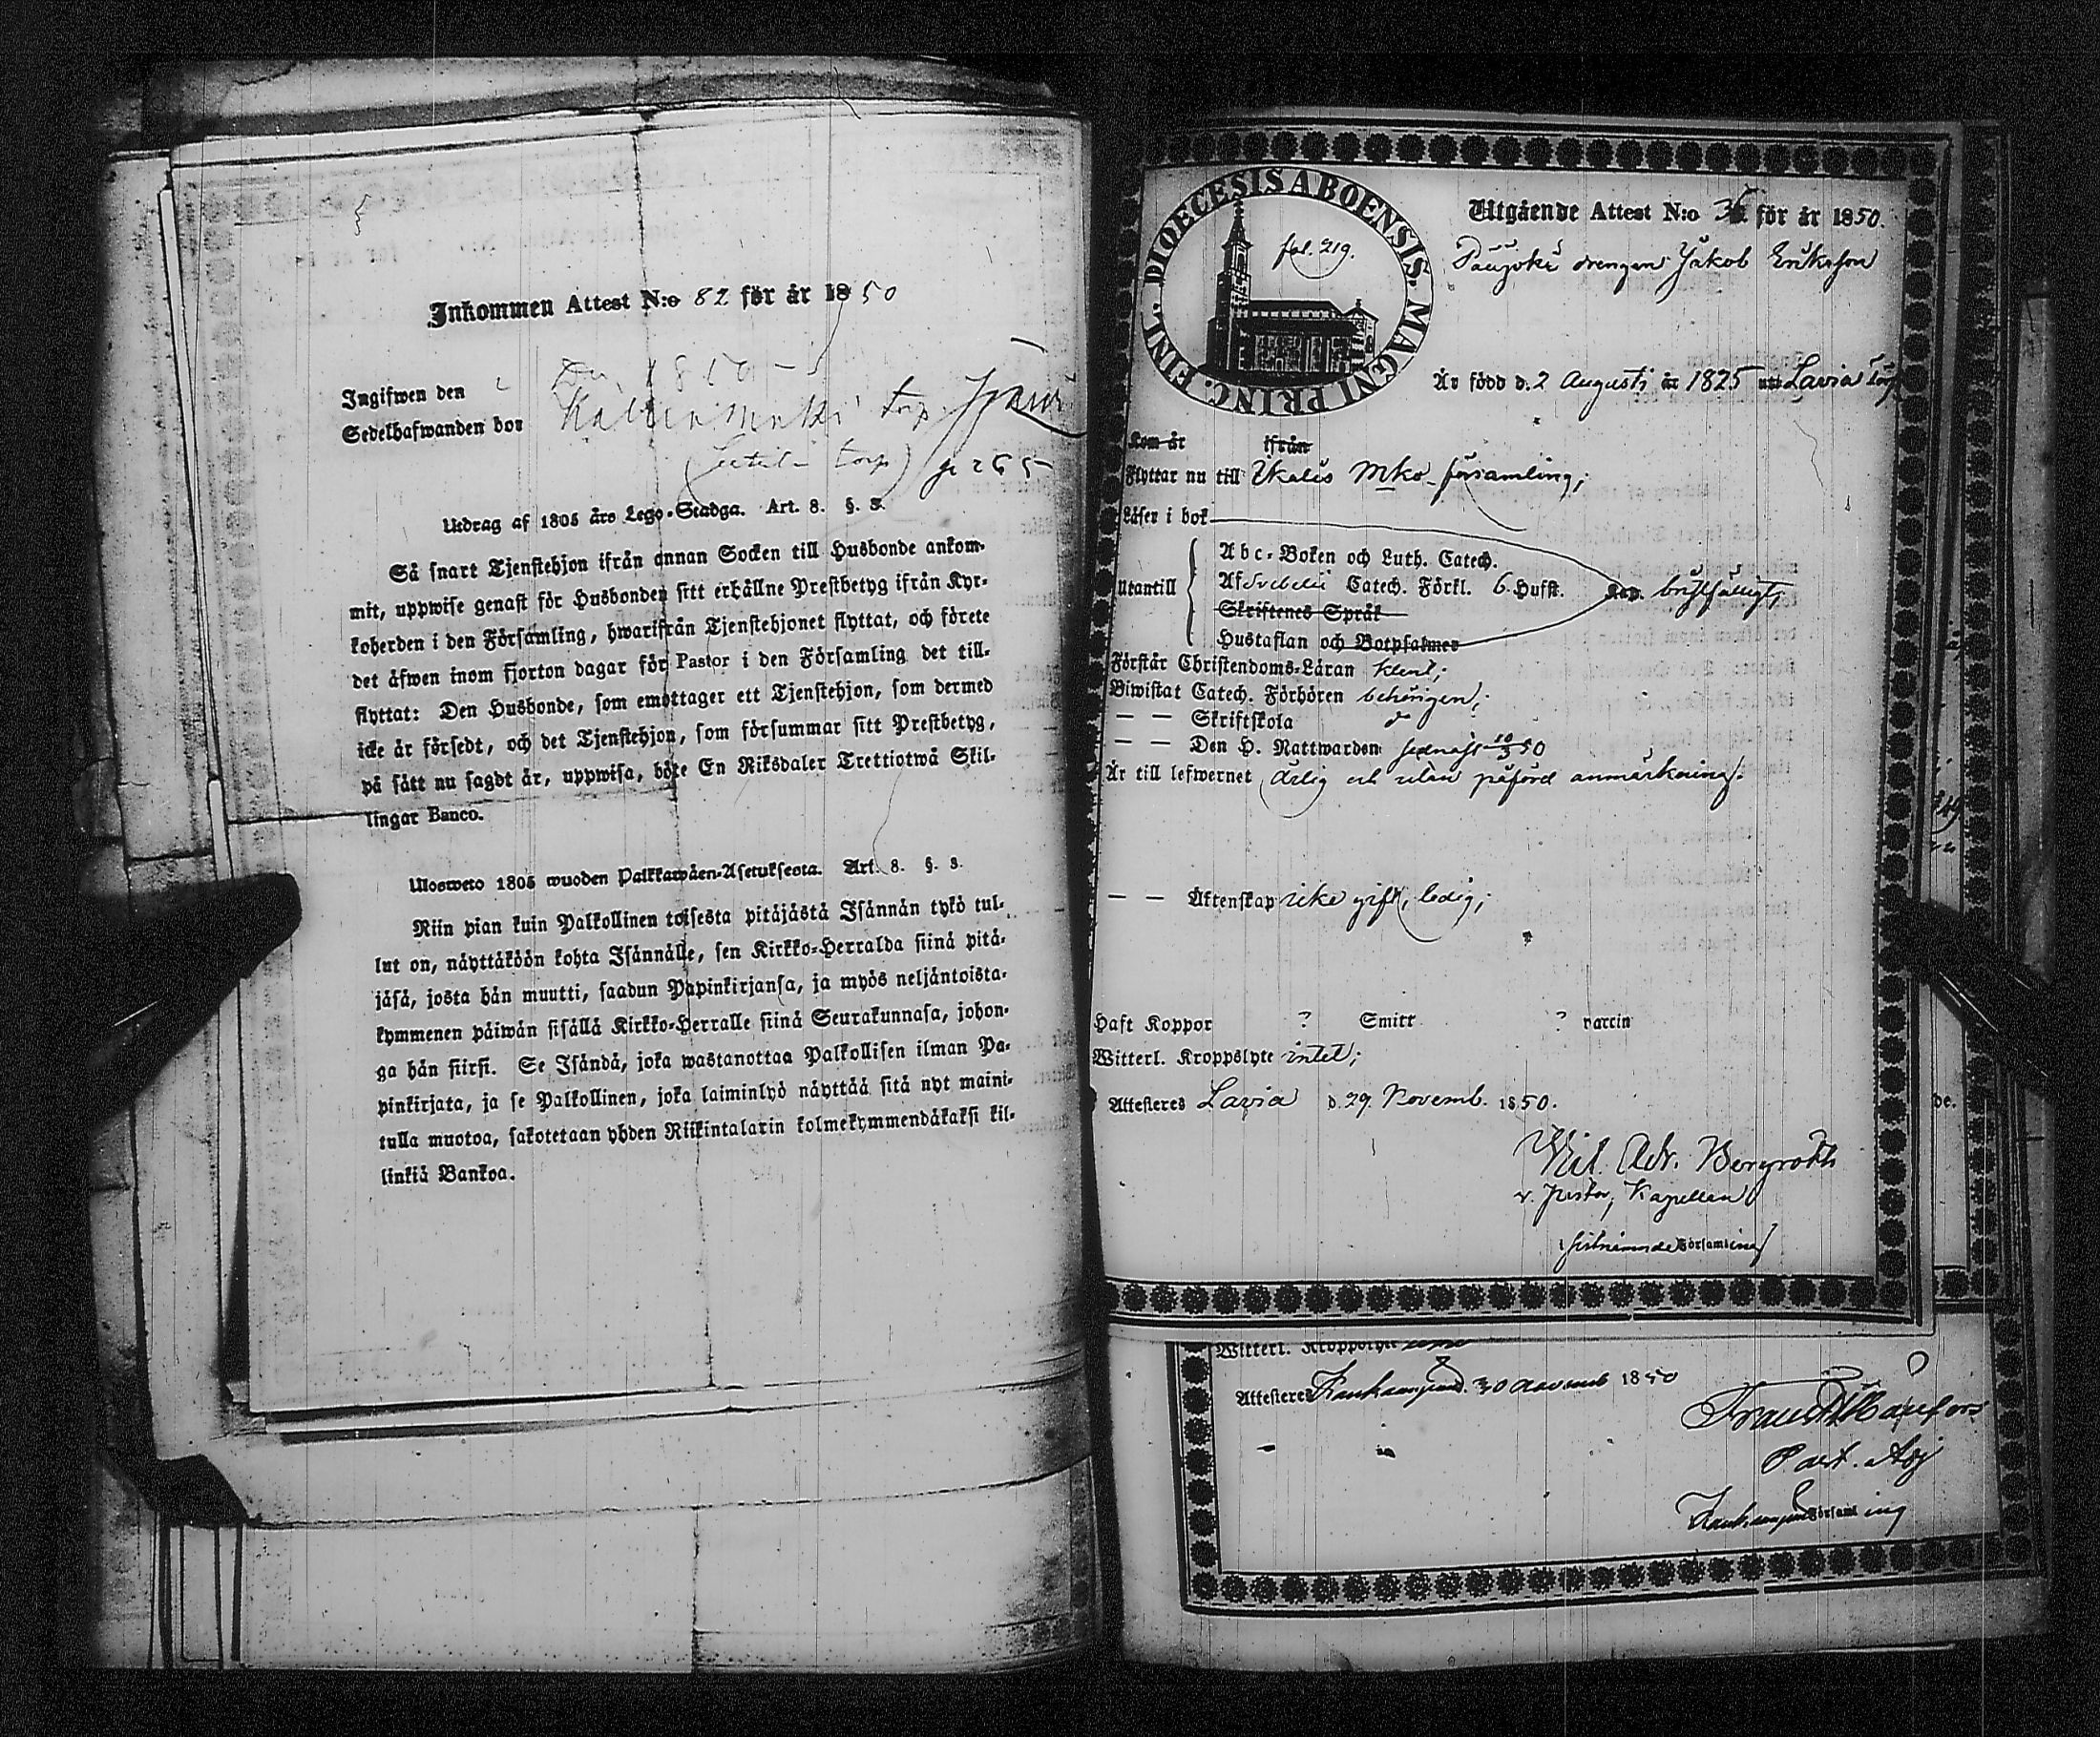 Inkommen Attest N:o 82 för år 1850
Ingifwen den
Sedelhafwanden bor torp
torp)
Utdrag af 1805 års Lego-Stadga. Art. 8. §. 3.
Så snart Tjenstehjon ifrån annan Socken till Husbonde ankom-
mit, uppwise genast för Husbonden sitt erhållne Prestbetyg ifrån Kyr-
koherden i den Församling, hwarifrån Tjenstehjonet flyttat, och förete
det äfwen inom fjorton dagar för Pastor i den Församling det till-
flyttat: Den Husbonde, som emottager ett Tjenstehjon, som dermed
icke är försedt, och det Tjenstehjon, som försummar sitt Prestbetyg,
på sätt nu sagdt är, uppwisa, böte En Riksdaler Trettiotwå Skil-
lingar Banco.
Ulosweto 1805 wuoden Palkkawäen-Asetuksesta. Art. 8. §. 3.
Niin pian kuin Palkollinen toisesta pitäjästä Isännän tykö tul-
lut on, näyttäköön kohta Isännälle, sen Kirkko-Herralda siinä pitä-
jäsä, josta hän muutti, saadun Papinkirjansa, ja myös neljäntoista-
kymmenen päiwän sisällä Kirkko-Herralle siinä Seurakunnasa, johon-
ga hän siirsi. Se Isändä, joka wastanottaa Palkollisen ilman Pa-
pinkirjata, ja se Palkollinen, joka laiminlyö näyttää sitä nyt maini-
tulla muotoa, sakotetaan yhden Riikintalarin kolmekymmendäkaksi kil-
linkiä Bankoa.
DIOECESIS ABOENSIS. MAGNI PRINC. FINL.
fol. 219.
Utgående Attest N:o för år 1850.
drengen Jakob Eriksson
Är född d. 2 Augusti år 1825 uti Lavia
Kom år ifrån
Flyttar nu till Ikalis Mko församling;
Läser i bok
Utantill
Abc-Boken och Luth. Catech.
Af Svebelii Catech. Förkl. 6 Hufst.
Skriftenes Språk
Hustaflan och Botpsalmer
Kap. bristfälligt;
Förstår Christendoms-Läran klent;
Biwistat Catech. Förhören behörigen;
— — Skriftskola do
— — Den H. Nattwarden sednast 10/3 50
Är till lefwernet ärlig och utan påförd anmärkning.
— — Äktenskap icke gift, ledig;
Haft Koppor ? Smitt ? vaccin
Witterl. Kroppslyte intet;
Attesteras Lavia d. 29. Novemb. 1850.
Wil. Adr. Bergroth
v. Pastor, Kapellan
i sistnämnde Församling
Witterl. Kroppslyte
Attesteras d. 30 novemb 1850
Past. Adj
Församling